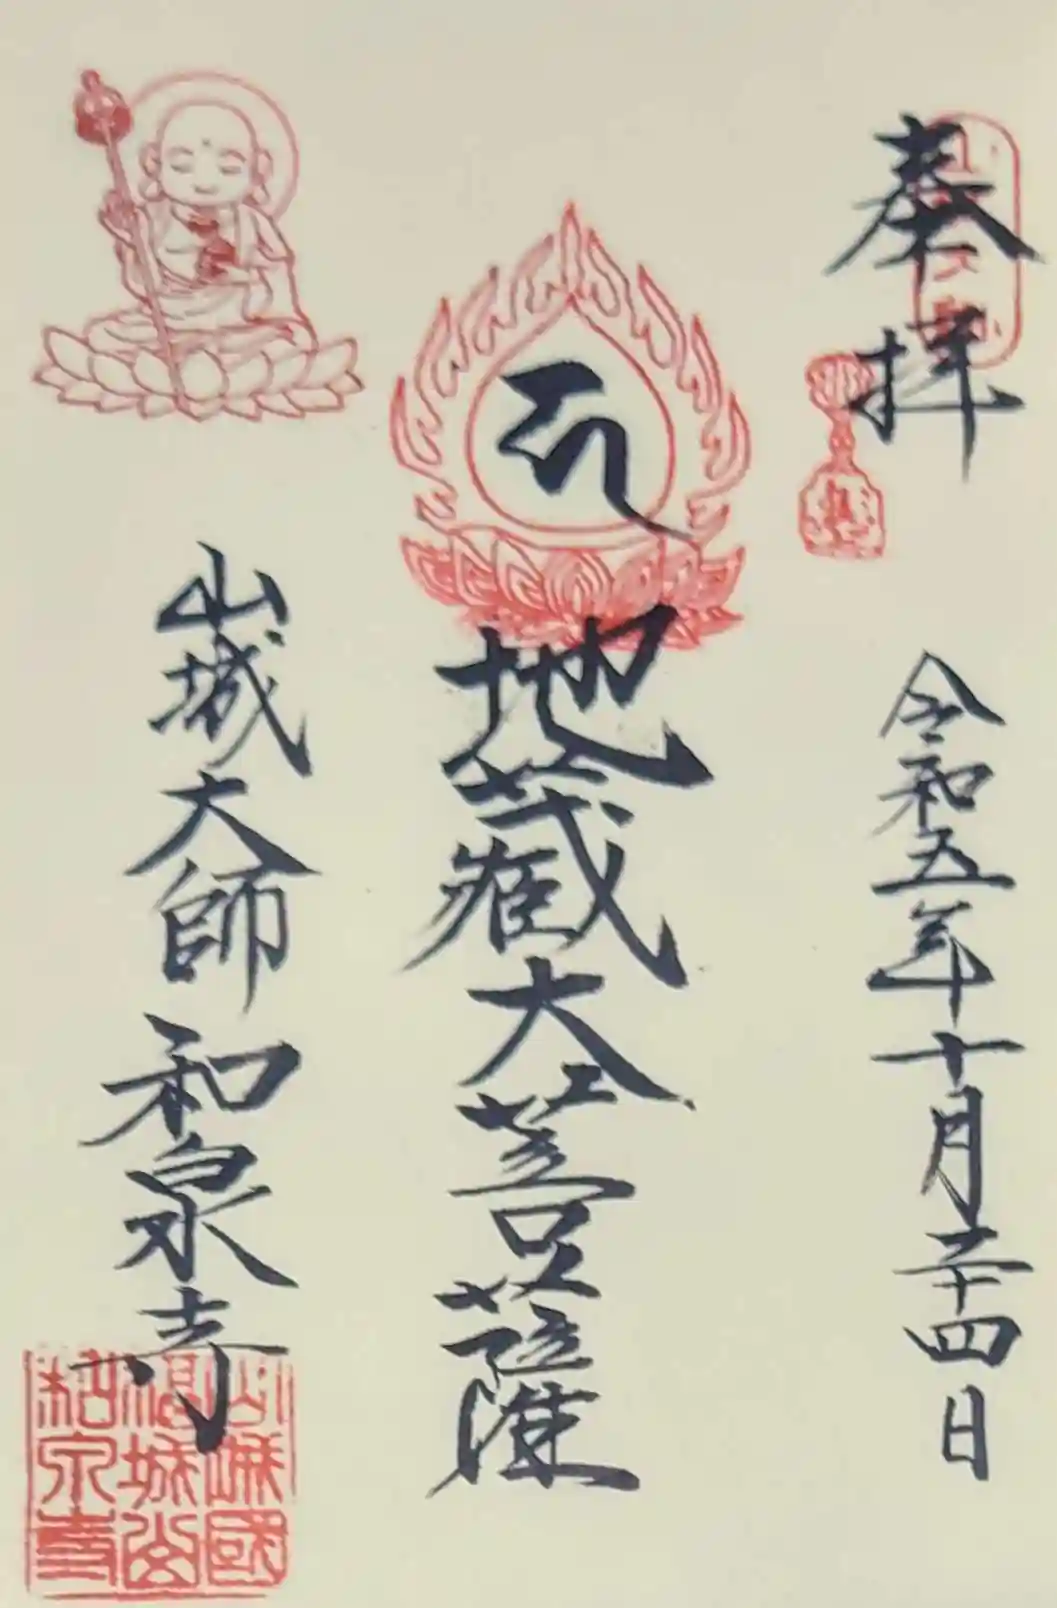 奉拝
令和五年十月二十四日
地蔵大菩薩
山城大師 和泉寺
山城國
城山
和泉寺